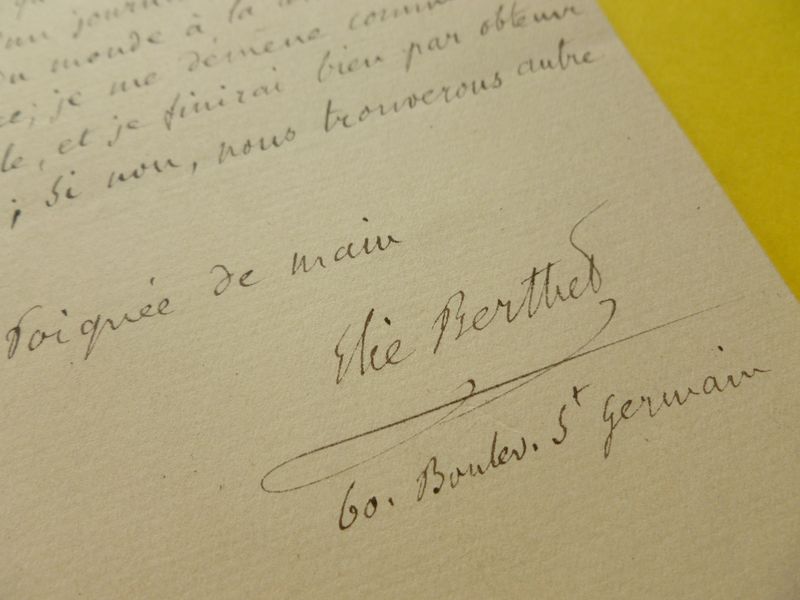 un journal
du monde à la
je me démène comme
le, et je finirai bien par obtenir
; Si non, nous trouverons autre
Poignée de main
Elie Berthet
60. Boulev. St Germain